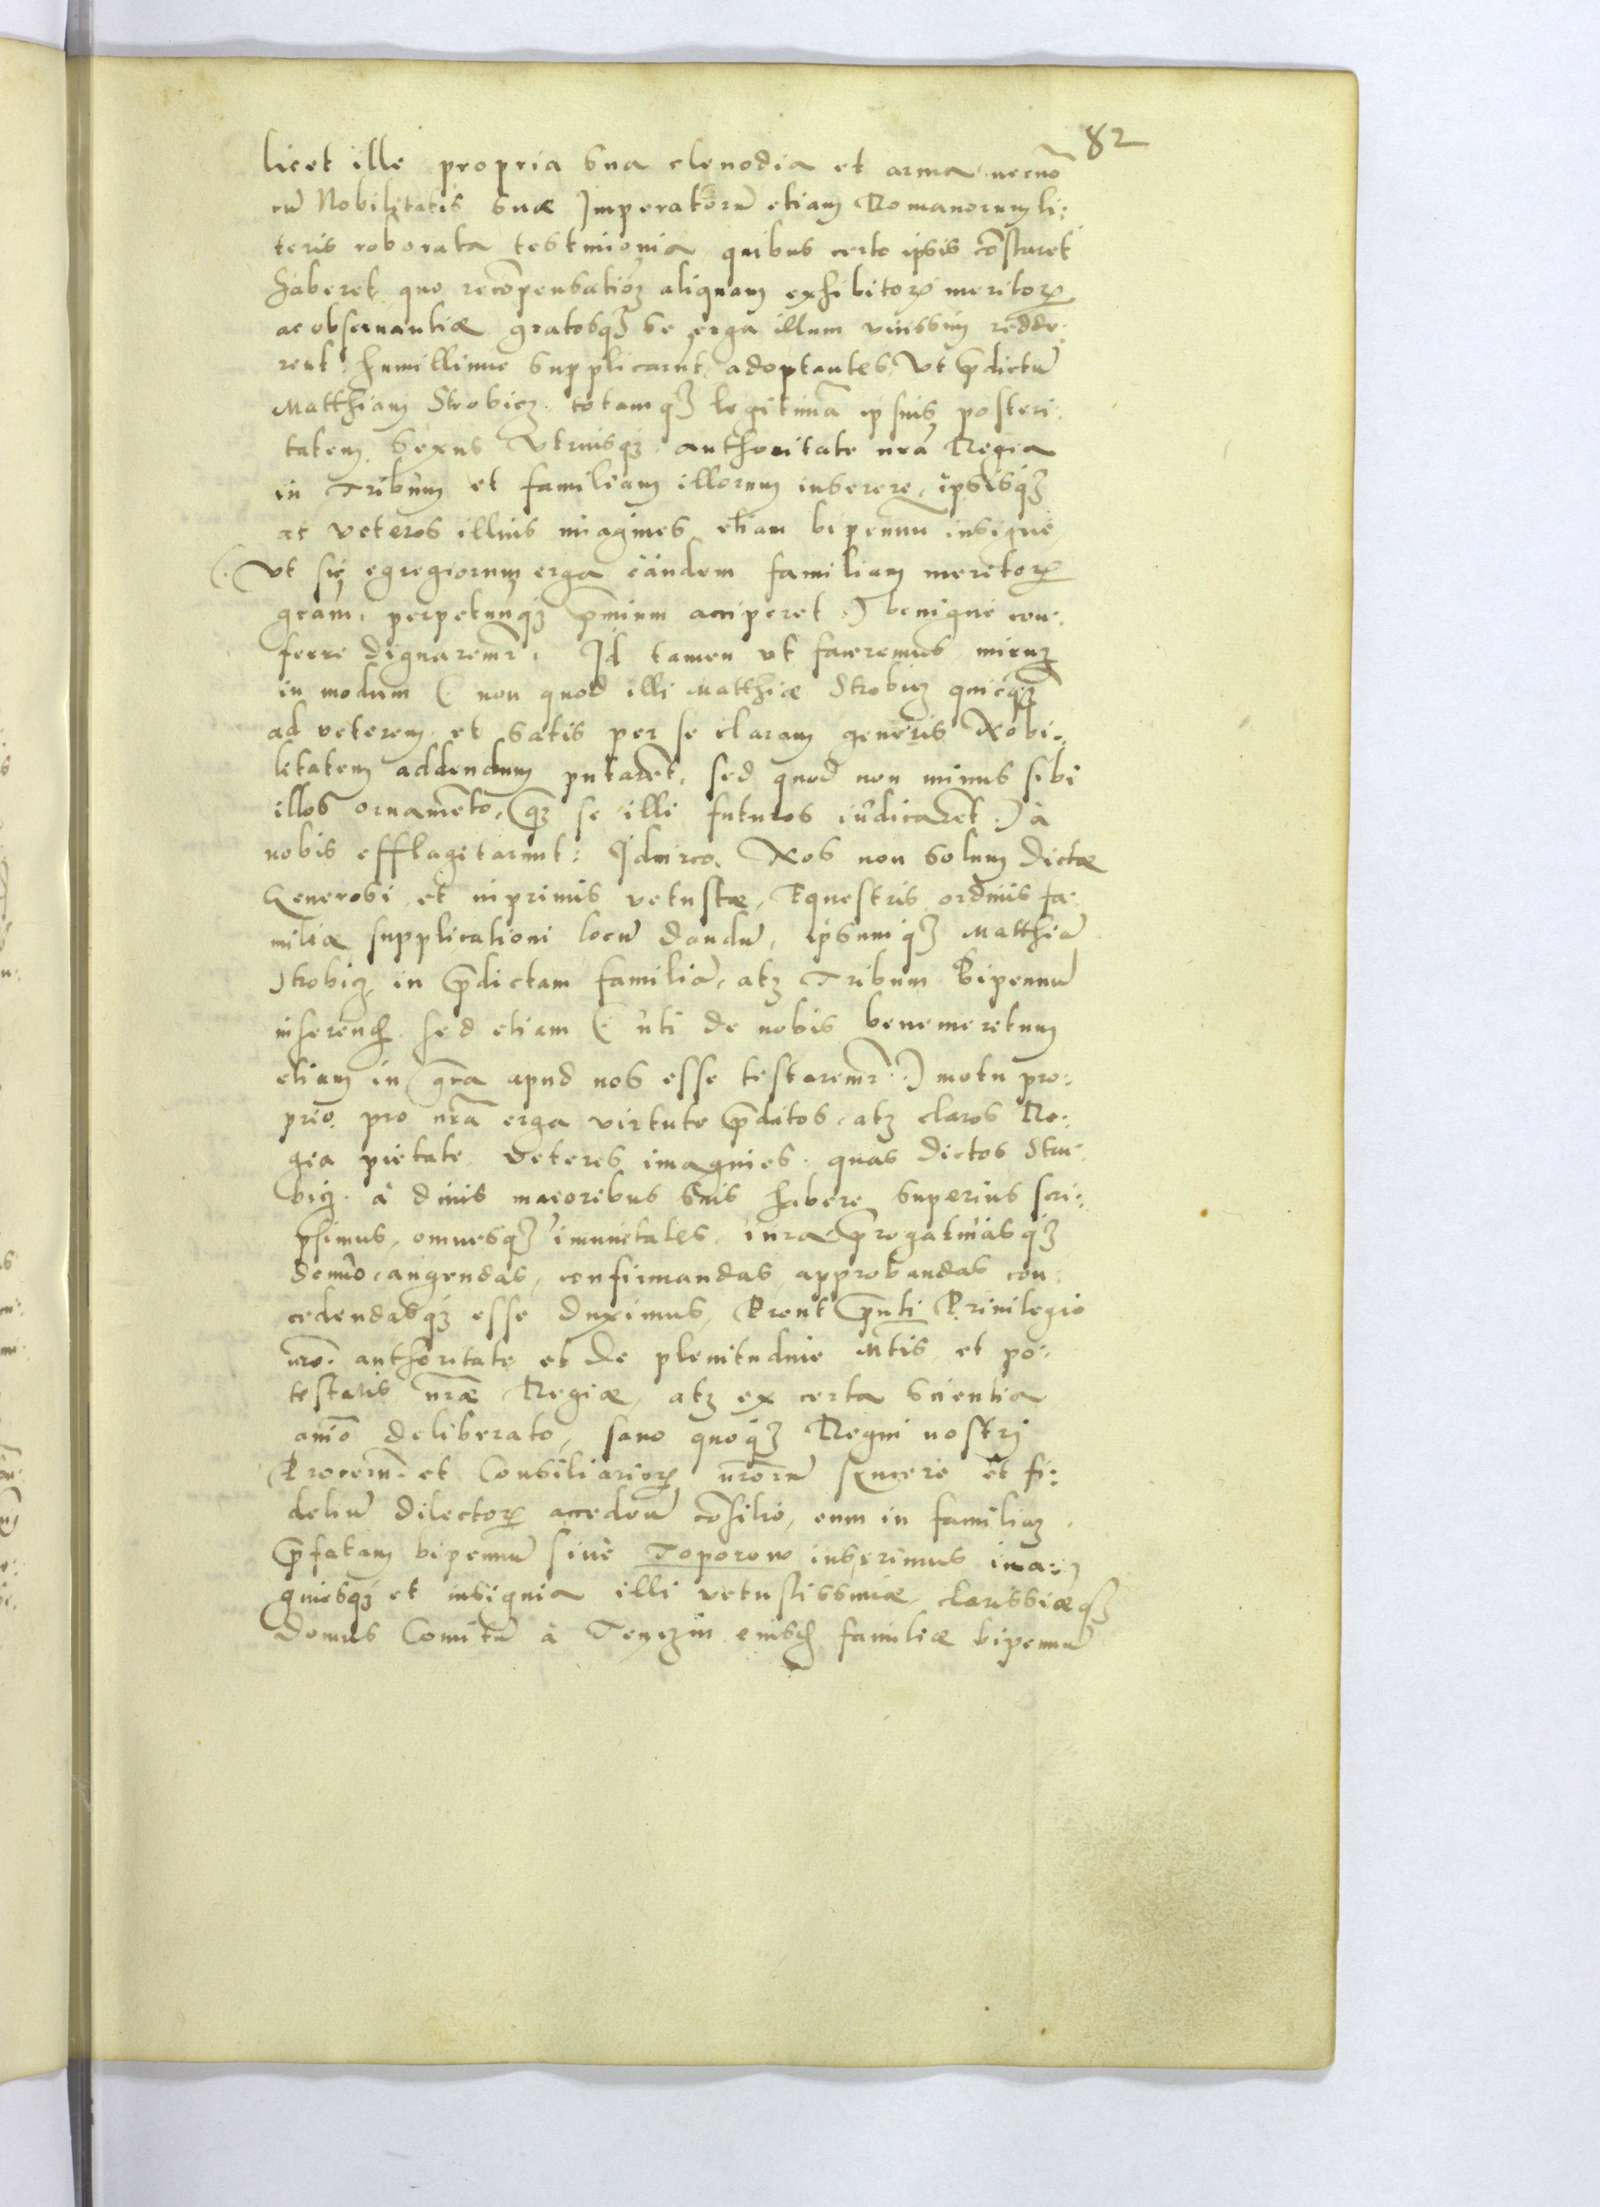 82
licet ille propria sua clenodia et arma necnō
cū Nobilitatis suæ Imperatorū etiam Romanorum li:
teris roborata testimonia quibus certo ipsis cōstaret
haberet quo recōpensatiōem aliquam exhibitorꝝ meritorꝝ
ac obseruantiæ gratosqꝫ se erga illum redde:
rent humillime supplicarunt adoptantes, vt p̄dictū
Matthiam Strobicz totamqꝫ legitimā ipsius posteri:
tatem sexus vtriusqꝫ authoritate nrā Regia
in Tribum et familiam illorum inserere, ipsisqꝫ
ac veteres illius imagines etiam bipennū insigne
(: vt sic egregiorum erga eandem familiam meritorꝝ
gram, perpetuūqꝫ p̄mium acciperet :) benigne con:
ferre dignaremr̄. Id tamen vt faceremus
in modum (: non quod illi Matthiæ Strobicz quicqꝫ
ad veterem et satis per se claram generis Nobi:
litatem addendum putarēt, sed quod non minus sibi
illos ornamēto, qꝫ se illi futuros iudicarēt :) à
nobis efflagitarunt: Idcirco Nos non solum dictæ
Generosi et inprimis vetustæ, Equestris ordinis fa:
miliæ supplicationi locū dandū, ipsumqꝫ Matthiā
Strobicz in p̄dictam familiā, atqꝫ Tribum Bipennū
inserend sed etiam (: uti de nobis benemeritum
etiam in gr̄a apud nos esse testaremr̄ :) motu pro:
prio pro nrā erga virtute p̄ditos, atqꝫ claros Re:
gia pietate veteres imagines quas dictos Stro:
bicz à diuis maioribus suis habere superius scri:
psimus, omnesqꝫ imunitates, iura p̄rogatiuasqꝫ
denuo augendas, confirmandas approbandas con:
cedendasqꝫ esse duximus, Prout p̄nti Priuilegio
nrō authoritate et de plenitudine Mtis et po:
testatis nrǣ Regiæ, atqꝫ ex certa scientia
aniō deliberato, sano quoqꝫ Regni nostri
Procerū et Consiliariorꝝ nrōrū syncere et fi:
deliū dilectorꝝ accedēte cōsilio, eum in familiam
p̄fatam bipennū siue Toporow inserimus ima:
ginesqꝫ et insignia illi vetustissimæ, clarissiæqꝫ
domus Comitū à Tenczin eiusd familiæ bipennū